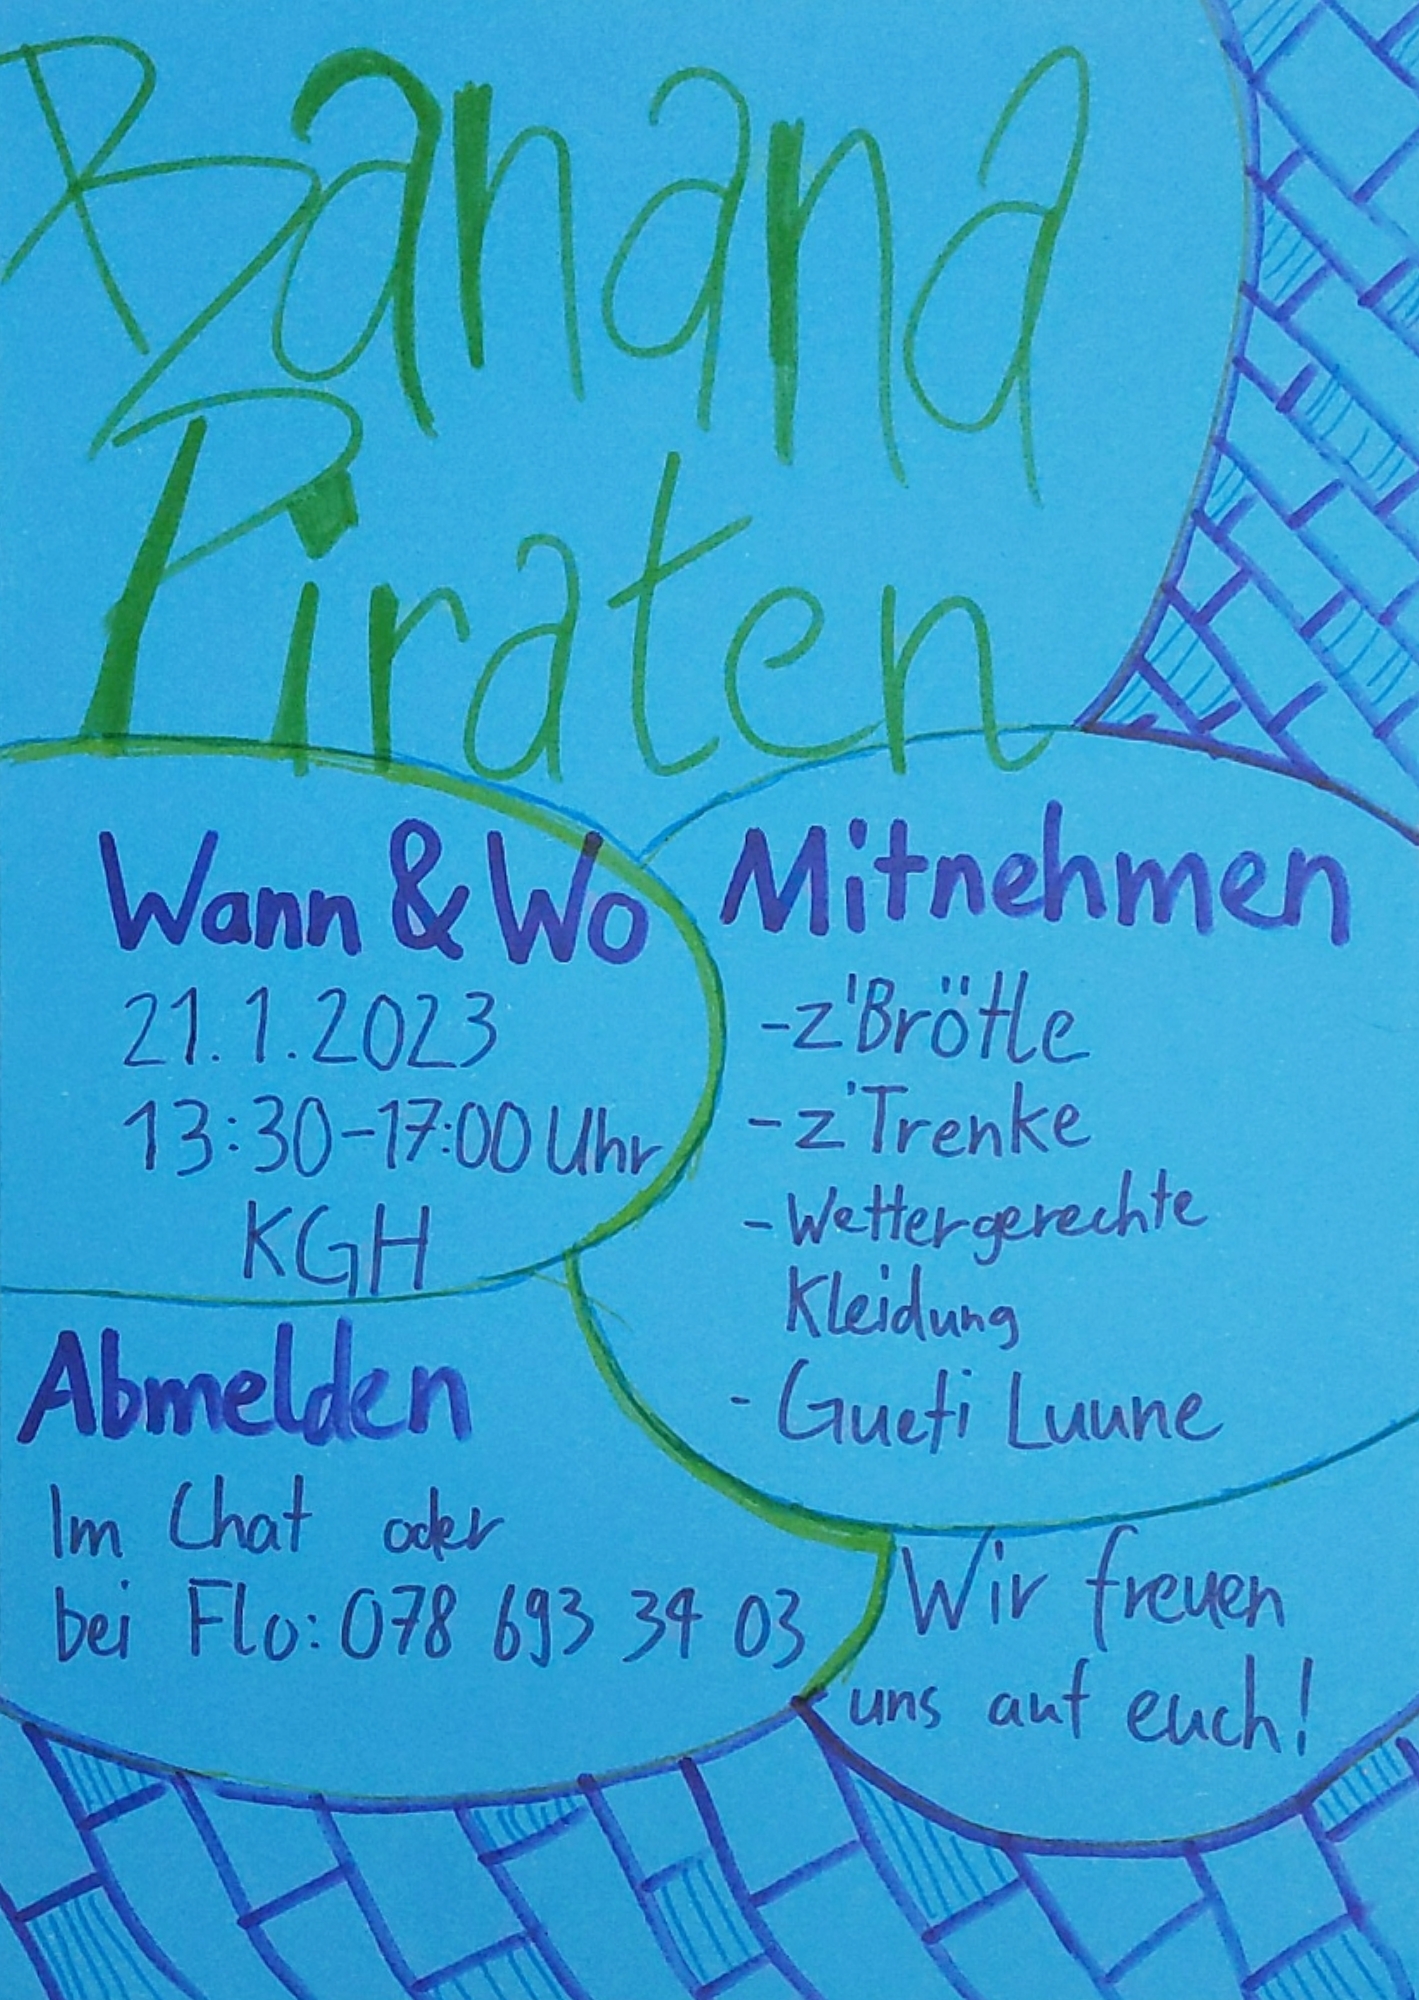 Banana
Piraten
Wann & Wo
21.1.2023
13:30-17:00 Uhr
KGH
Mitnehmen
-z'Brötle
-z'Trenke
-Wettergerechte
Kleidung
- Gueti Luune
Abmelden
Im Chat oder
bei Flo: 078 693 34 03
Wir freuen
uns auf euch!